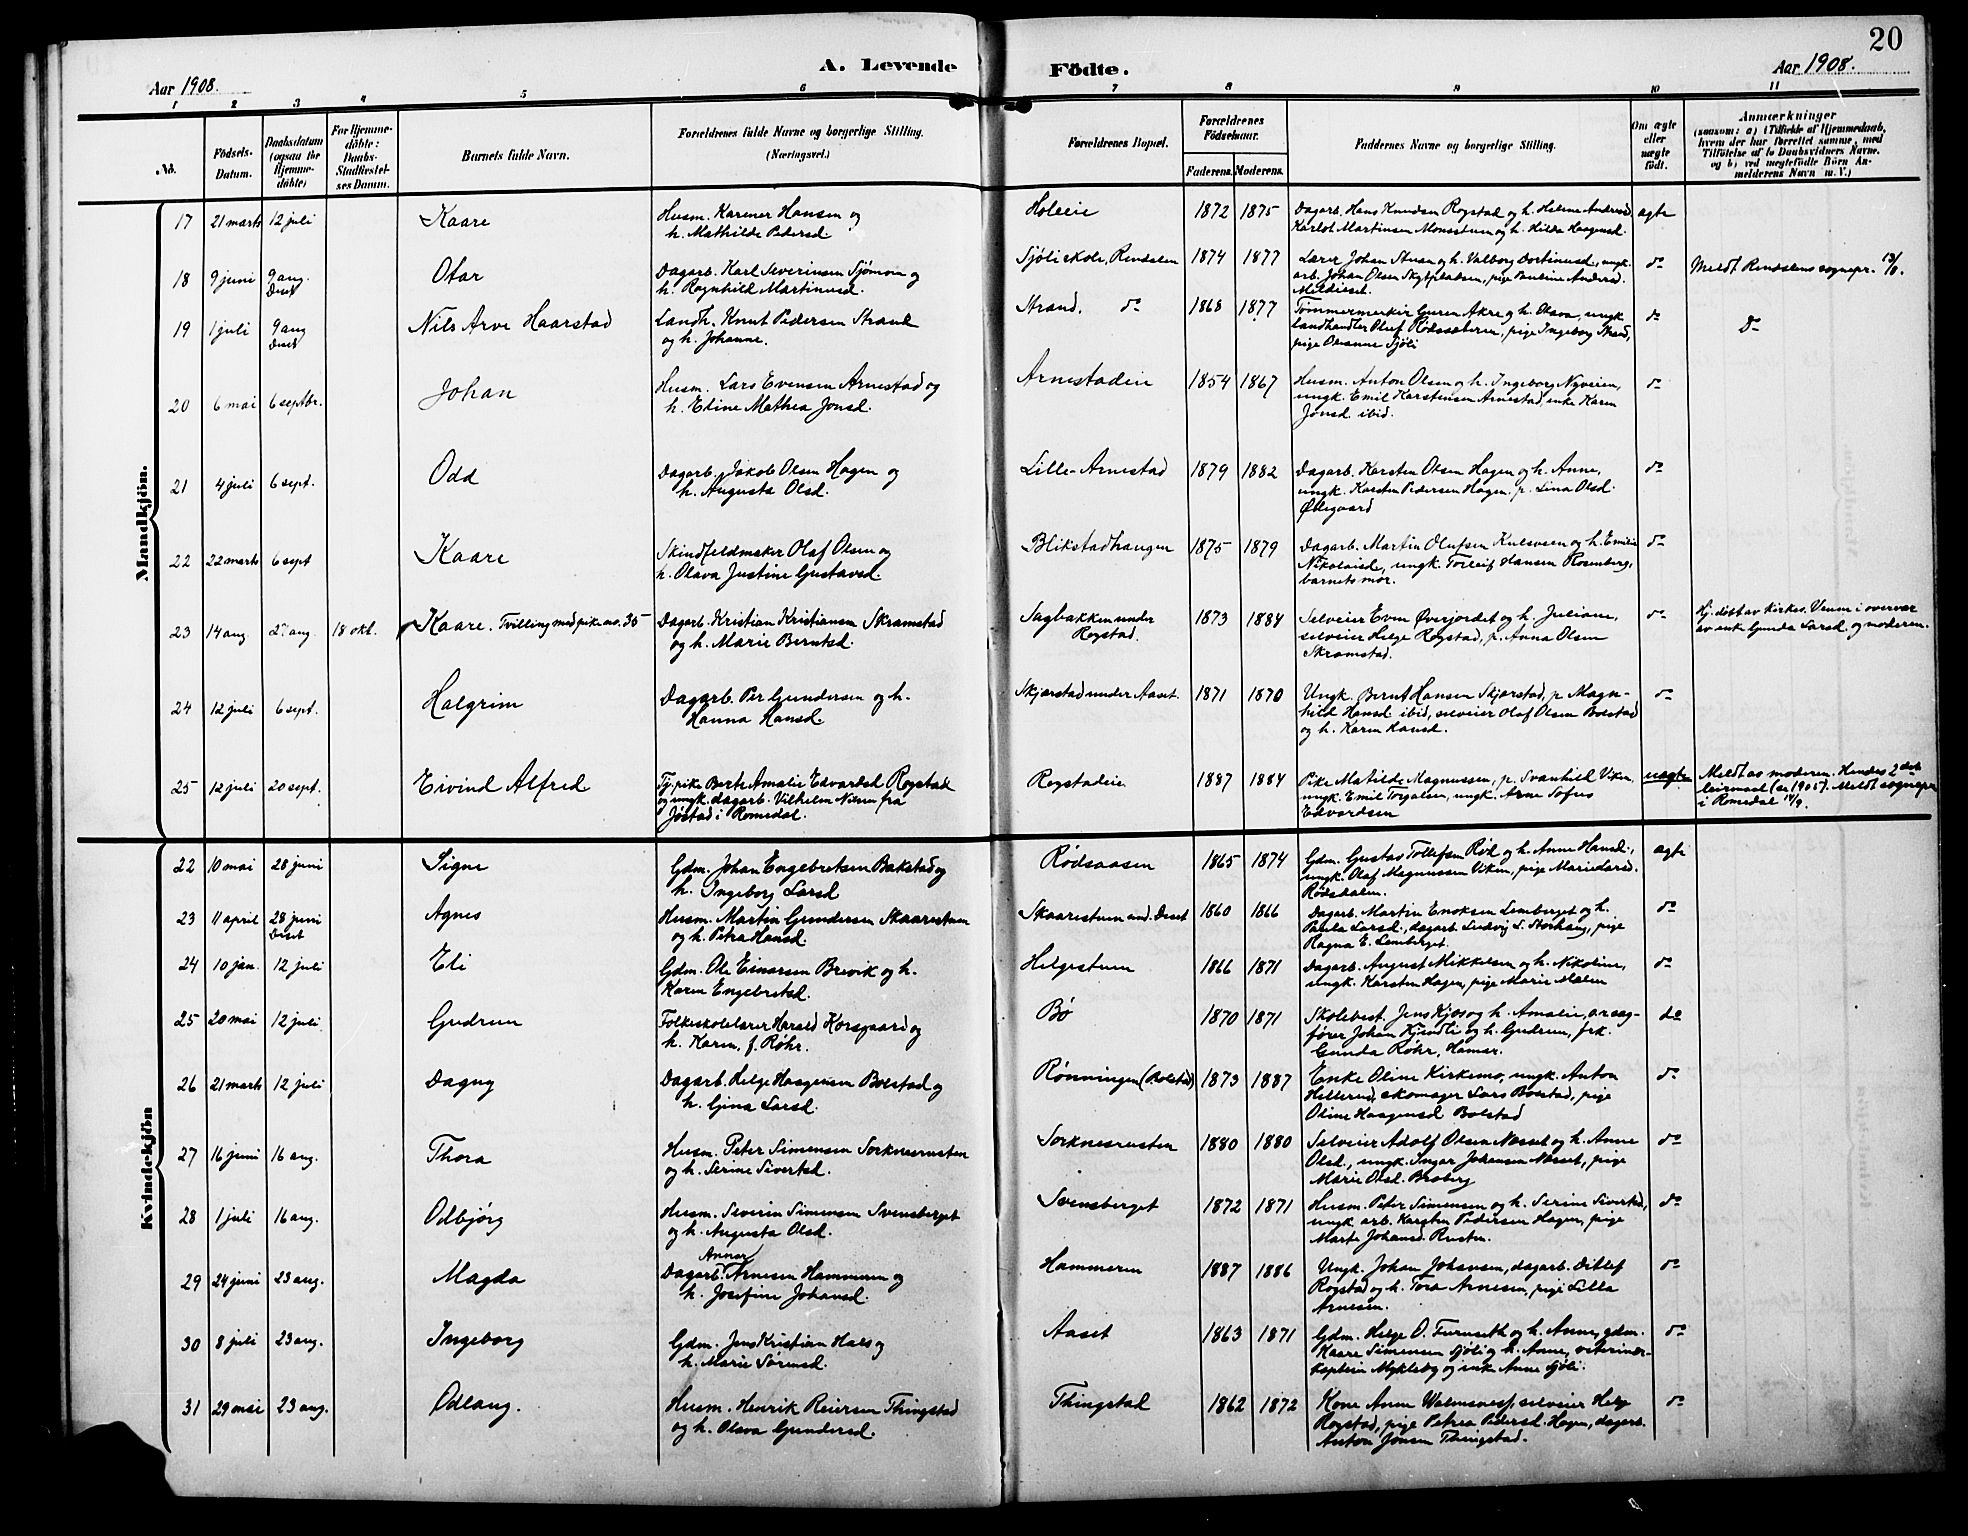 20
A. Levende Födte.
Aar 1908.
Aar 1908.
1 2 3 4 5 6 7 8 9 10 11
No.
Födsels-Datum.
Daabsdatum (ogsaa for Hjemmedöbte)
For Hjemmedöbte: Daabs-Stadfæstelses Datum.
Barnets fulde Navn.
Forældrenes fulde Navne og borgerlige Stilling. (Næringsvei.)
Forældrenes Bopæl.
Forældrenes Födselsaar.
Faderens. Moderens.
Faddernes Navne og borgerlige Stilling.
Om ægte eller uægte födt.
Anmærkninger
(saasom: a) i Tilfælde af Hjemmedaab, hvem der har forrettet samme, med Tilföielse af to Daabsvidners Navne, og b) ved uægtefödte Börn Anmelderens Navn m. V.)
Mandkjön.
17 21 marts 12 juli Kaare Husm. Karener Hansen og h. Mathilde Pedersd. Holeie 1872 1875 Dagarb. Hans Knudsen Rogstad og h. Helene Andersd. Karlot Martinsen Monsstuen og h. Hilda Haagensd. ægte
18 9 juni 9 aug. Deset Otar Dagarb. Karl Severinsen Sjømoen og h. Ragnhild Martinusd. Sjøli skole, Rendalen 1874 1877 Lærer Johan Strøm og h. Valborg Dortinusd., ungk. arb. Johan Olsen Skytpladsen, pige Pauline Andersd. Meldieset. do Meldt Rendalens sognepr. 13/8.
19 1 juli 9 aug Deset Nils Arve Haarstad Landh. Knut Pedersen Strand og h. Johanne. Strand, do 1868 1877 Tømmermerker Guren Akre og h. Olava, ungk. landhandler Oluf Rødssæteren, pige Ingeborg Strand, pige Oleanne Sjøli do do
20 6 mai 6 septbr. Johan Husm. Lars Evensen Arnestad og h. Edine Mathea Jonsd. Arnestadeie 1854 1867 Husm. Anton Olsen og h. Ingeborg Nyveien, ungk. Emil Karstensen Arnestad, enke Karen Jonsd. ibid. do
21 4 juli 6 sept. Odd Dagarb. Jakob Olsen Hagen og h. Augusta Olsd. Lille-Arnestad 1879 1882 Dagarb. Karsten Olsen Hagen og h. Anne, ungk. Karsten Pedersen Hagen, p. Lina Olsd. Ødegaard do
22 22 marts 6 sept Kaare Skindfeldmaker Olaf Olsen og h. Olava Justine Gustavsd. Blikstadhaugen 1875 1879 Dagarb. Martin Olufsen Kulsveen og h. Emilie Nikolaisd., ungk. Torleif Hansen Rosenberg, barnets mor. do
23 14 aug. 27 aug. 18 okt. Kaare. Tvilling med pike no. 35 Dagarb. Kristian Kristiansen Skramstad og h. Marie Berntsd. Sagbakken under Rogstad. 1873 1884 Selveier Even Øverjordet og h. Juliane, selveier Helge Rogstad, p. Anna Olsen Skramstad. do Hj. døbt av Kirkes. Venum i overvær av enke Gunda Larsd. og moderen.
24 12 juli 6 sept. Halgrim Dagarb. Per Gundersen og h. Hanna Hansd. Skjærstad under Aaset. 1871 1870 Ungk. Bernt Hansen Skjærstad, p. Magnhild Hansd. ibid, selveier Olaf Olsen Bolstad og h. Karen Hansd. do
25 12 juli 20 sept. Eivind Alfred Tj. pike Berte Amalie Edvardsd. Rogstad og ungk. dagarb. Vilhelm Nilsen fra Jøstad i Romedal. Rogstadeie 1887 1884 Pike Matilde Magnussen, p. Svanhild Viken, ungk. Emil Torgalsen, ungk. Arne Sofus Edvardsen uægte Meldt av moderen. Hendes 2det leiermaal (se 1905). Meldt sognepr. i Romedal 14/9.
Kvindekjön
22 10 mai 28 juni Signe Gdm. Johan Engebretsen Bakstad og h. Ingeborg Larsd. Rødsaasen 1865 1874 Gdm. Gustav Tollefsen Rød og h. Anne Hansd., ungk. Olaf Magnussen Viken, pige Marie Larsd. Rødsdalen. ægte
23 11 april 28 juni Deset Agnes Husm. Martin Gundersen Skaarestuen og h. Petra Hansd. Skaarestuen und. Deset 1860 1866 Dagarb. Martin Enoksen Lemberget og h. Paula Larsd., dagarb. Ludvig L. Storhaug, pige Ragna E. Lemberget. do
24 10 jan. 12 juli Eli Gdm. Ole Einarsen Brevik og h. Karen Engebretsd. Helgestuen 1866 1871 Dagarb. August Mikkelsen og h. Nikoline, ungk. Karsten Hagen, pige Marie Malen do
25 20 mai 12 juli Gudrun Folkeskolelærer Harald Korsgaard og h. Karen, f. Røhr. Bø 1870 1871 Skolebest. Jens Kjøs og h. Amalie, o.r.sagfører Johan Kjendli og h. Gudrun, frk. Gunda Røhr, Hamar. do
26 21 marts 12 juli Dagny Dagarb. Helge Haagensen Bolstad og h. Gina Larsd. Rønningen (Bolstad) 1873 1887 Enke Oline Kirkemo, ungk. Anton Hillerud, skomager Lars Bolstad, pige Oline Haagensd Bolstad do
27 16 juni 16 aug. Thora Husm. Peter Simensen Sorknesrusten og h. Serine Sivertsd. Sorknesrusten 1880 1880 Selveier Adolf Olsen Næset og h. Anne Olsd., ungk. Ingar Johansen Næset, pige Marie Olsd. Broberg do
28 1 juli 16 aug. Odbjørg Husm. Severin Simensen Svensberget og h. Augusta Olsd. Svensberget 1872 1871 Husm. Peter Simensen og h. Serine Sivertsd., ungk. arb. Karsten Pedersen Hagen, pige Marte Johansd. Rusten. do
29 24 juni 23 aug. Magda Dagarb. Annar Arnesen Hammeren og h. Josefine Johansd. Hammeren 1887 1886 Ungk. Johan Johansen, dagarb. Ditlef Rogstad og h. Tora Arnesen, pige Lilla Arnesen. do
30 8 juli 23 aug. Ingeborg Gdm. Jens Kristian Hals og h. Marie Sørensd. Aaset 1863 1871 Gdm. Helge O. Furuseth og h. Anne, gdm. Kaare Simensen Sjøli og h. Anne, veterinærkaptein Mykleby og enke Anne Sjøli. do
31 29 mai 23 aug. Odlaug. Husm. Henrik Reiersen Thingstad og h. Olava Gundersd. Thingstad 1862 1872 Kone Anne Walmsness, selveier Helge Rogstad, pige Petrea Pedersd. Hagen, dagarb. Anton Jonsen Thingstad. do